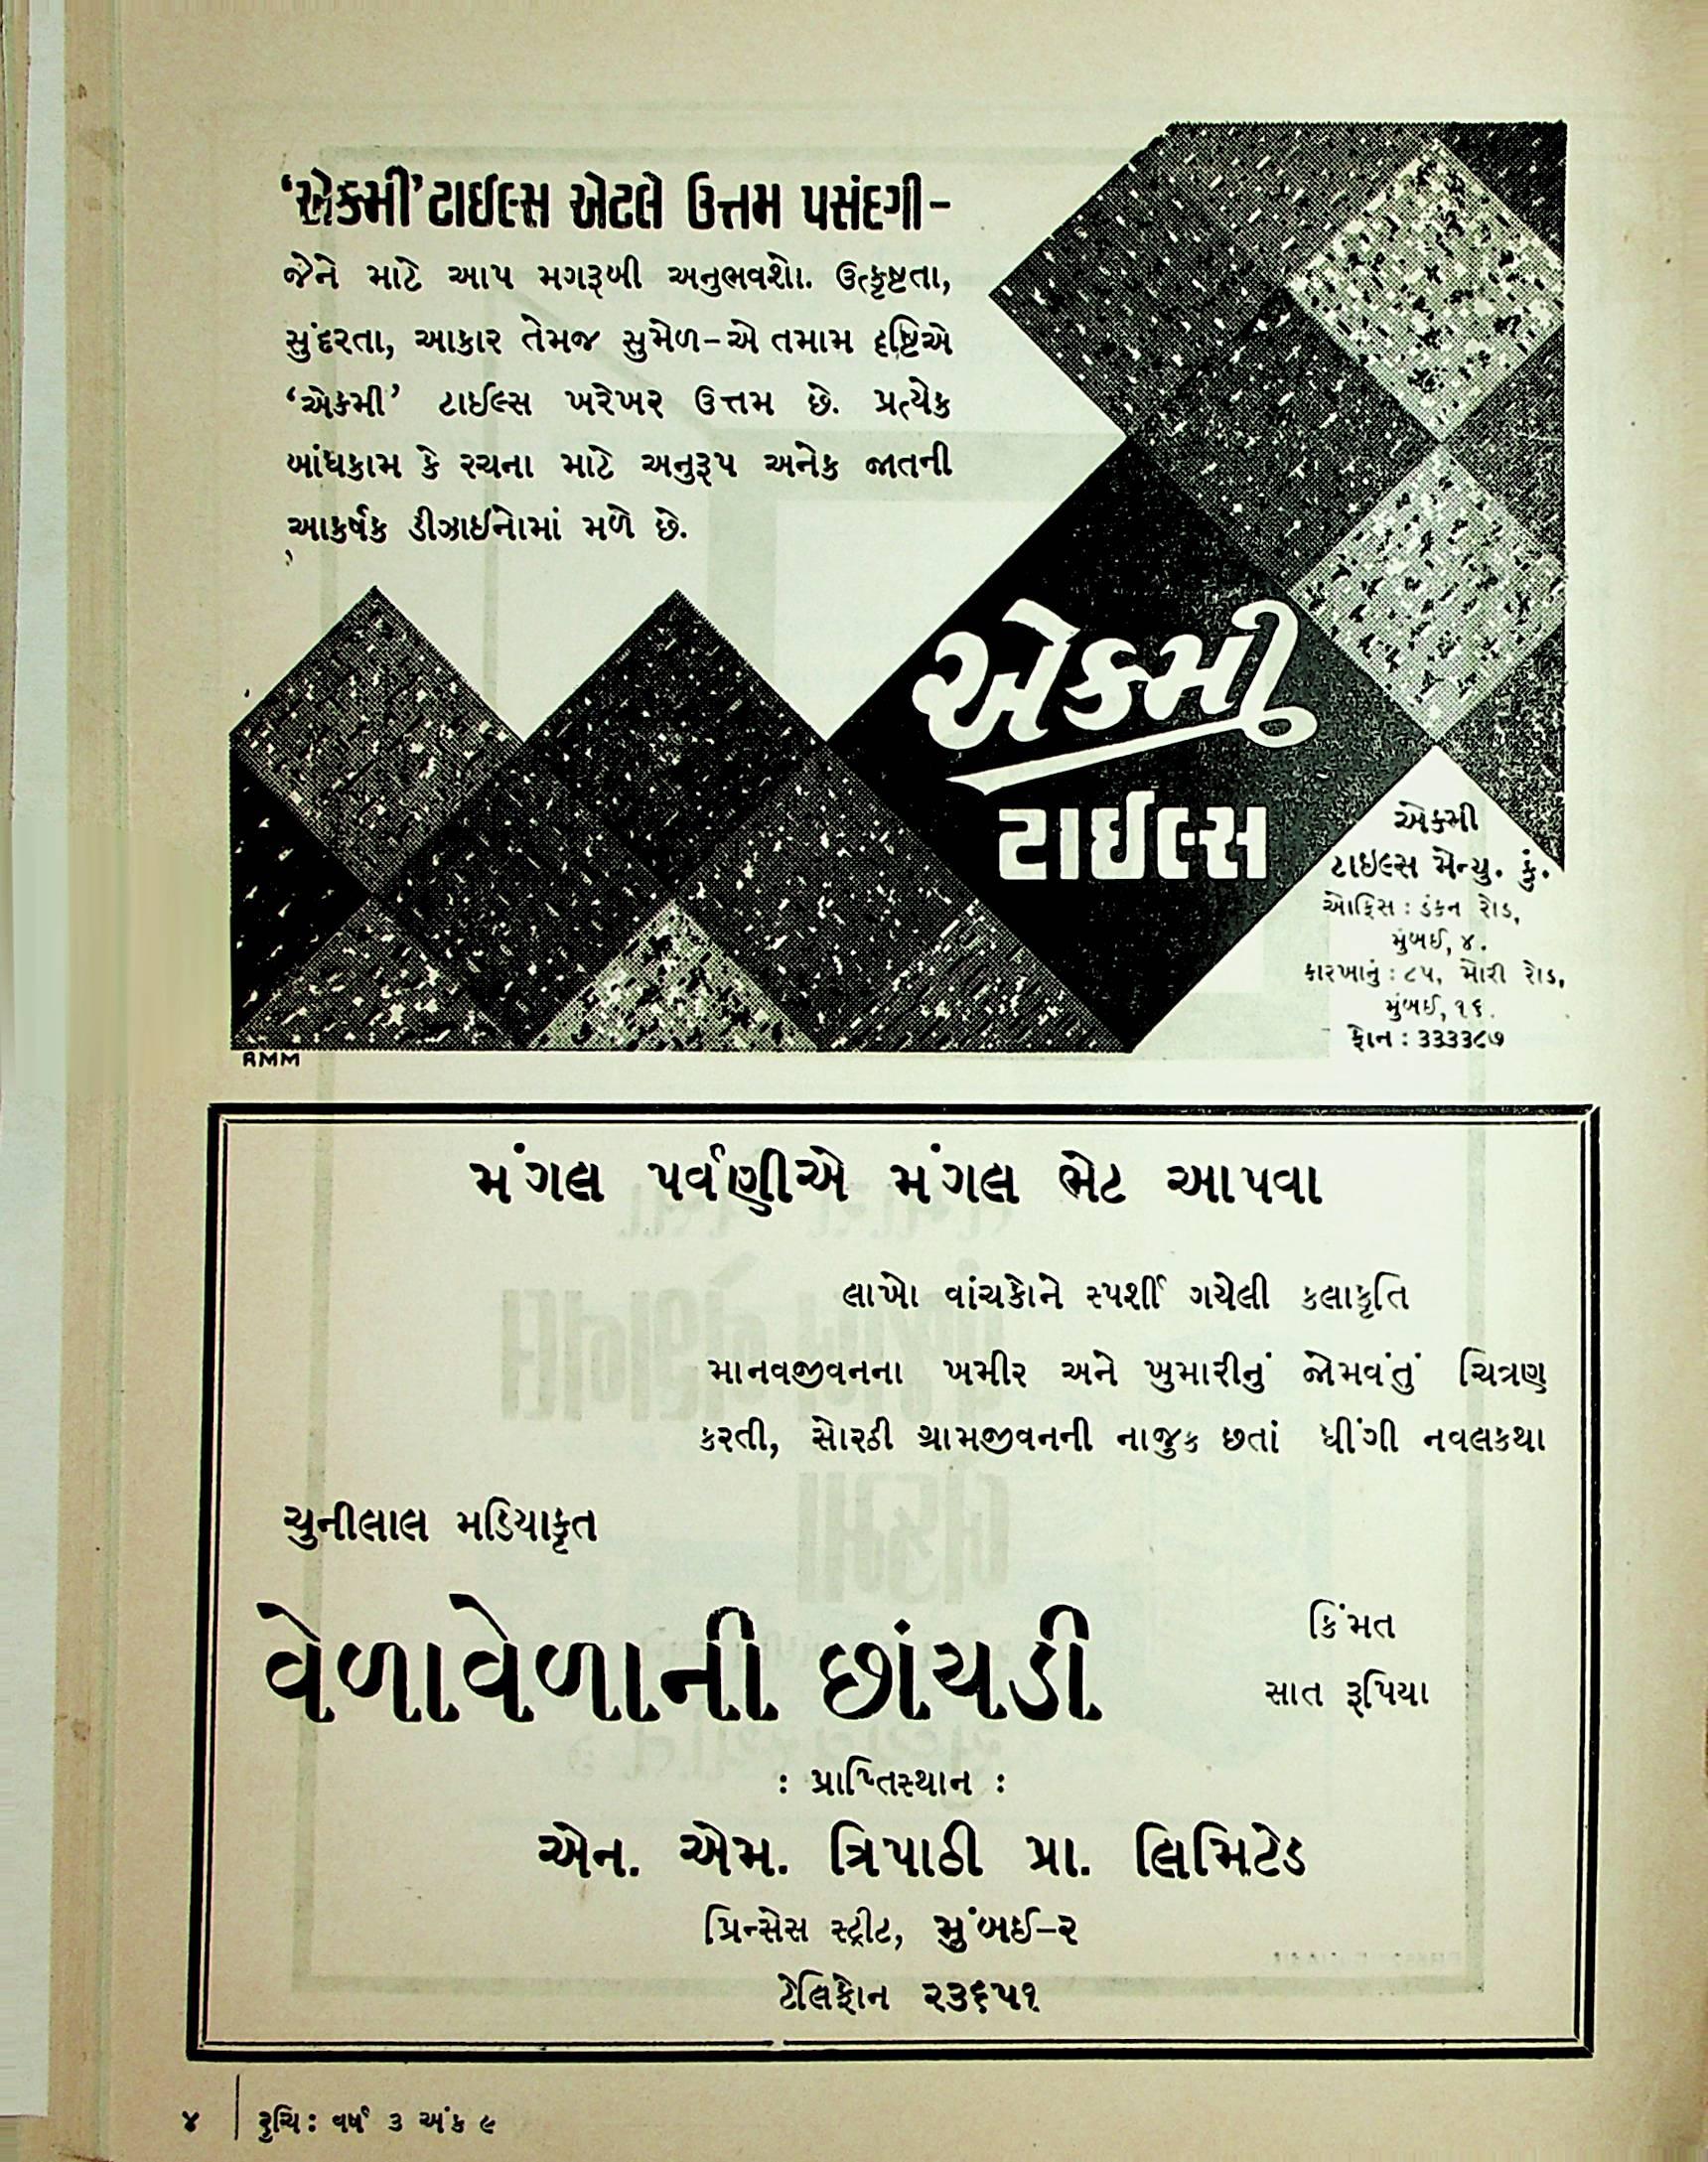 ‘એકમી’ ટાઈલ્સ એટલે ઉત્તમ પસંદગી–
જેને માટે આપ મગરૂબી અનુભવશો. ઉત્કૃષ્ટતા,
સુંદરતા, આકાર તેમજ સુમેળ–એ તમામ દૃષ્ટિએ
‘એકમી’ ટાઈલ્સ ખરેખર ઉત્તમ છે. પ્રત્યેક
બાંધકામ કે રચના માટે અનુરૂપ અનેક જાતની
આકર્ષક ડીઝાઈનોમાં મળે છે.
એકમી
ટાઈલ્સ
એકમી
ટાઇલ્સ મેન્યુ. કું.
ઓફિસ : ડંકન રોડ,
મુંબઈ, ૪.
કારખાનું : ૮૫, મોરી રોડ,
મુંબઈ, ૧૬.
ફોન : ૩૩૩૩૮૭
RMM
મંગલ પર્વણીએ મંગલ ભેટ આપવા
લાખો વાંચકોને સ્પર્શી ગયેલી કલાકૃતિ
માનવજીવનના ખમીર અને ખુમારીનું જોમવંતું ચિત્રણ
કરતી, સોરઠી ગ્રામજીવનની નાજુક છતાં ધીંગી નવલકથા
ચુનીલાલ મડિયાકૃત
વેળાવેળાની છાંયડી
કિંમત
સાત રૂપિયા
: પ્રાપ્તિસ્થાન :
એન. એમ. ત્રિપાઠી પ્રા. લિમિટેડ
પ્રિન્સેસ સ્ટ્રીટ, મુંબઈ–૨
ટેલિફોન ૨૩૬૫૧
૪ | રુચિ: વર્ષ ૩ અંક ૯